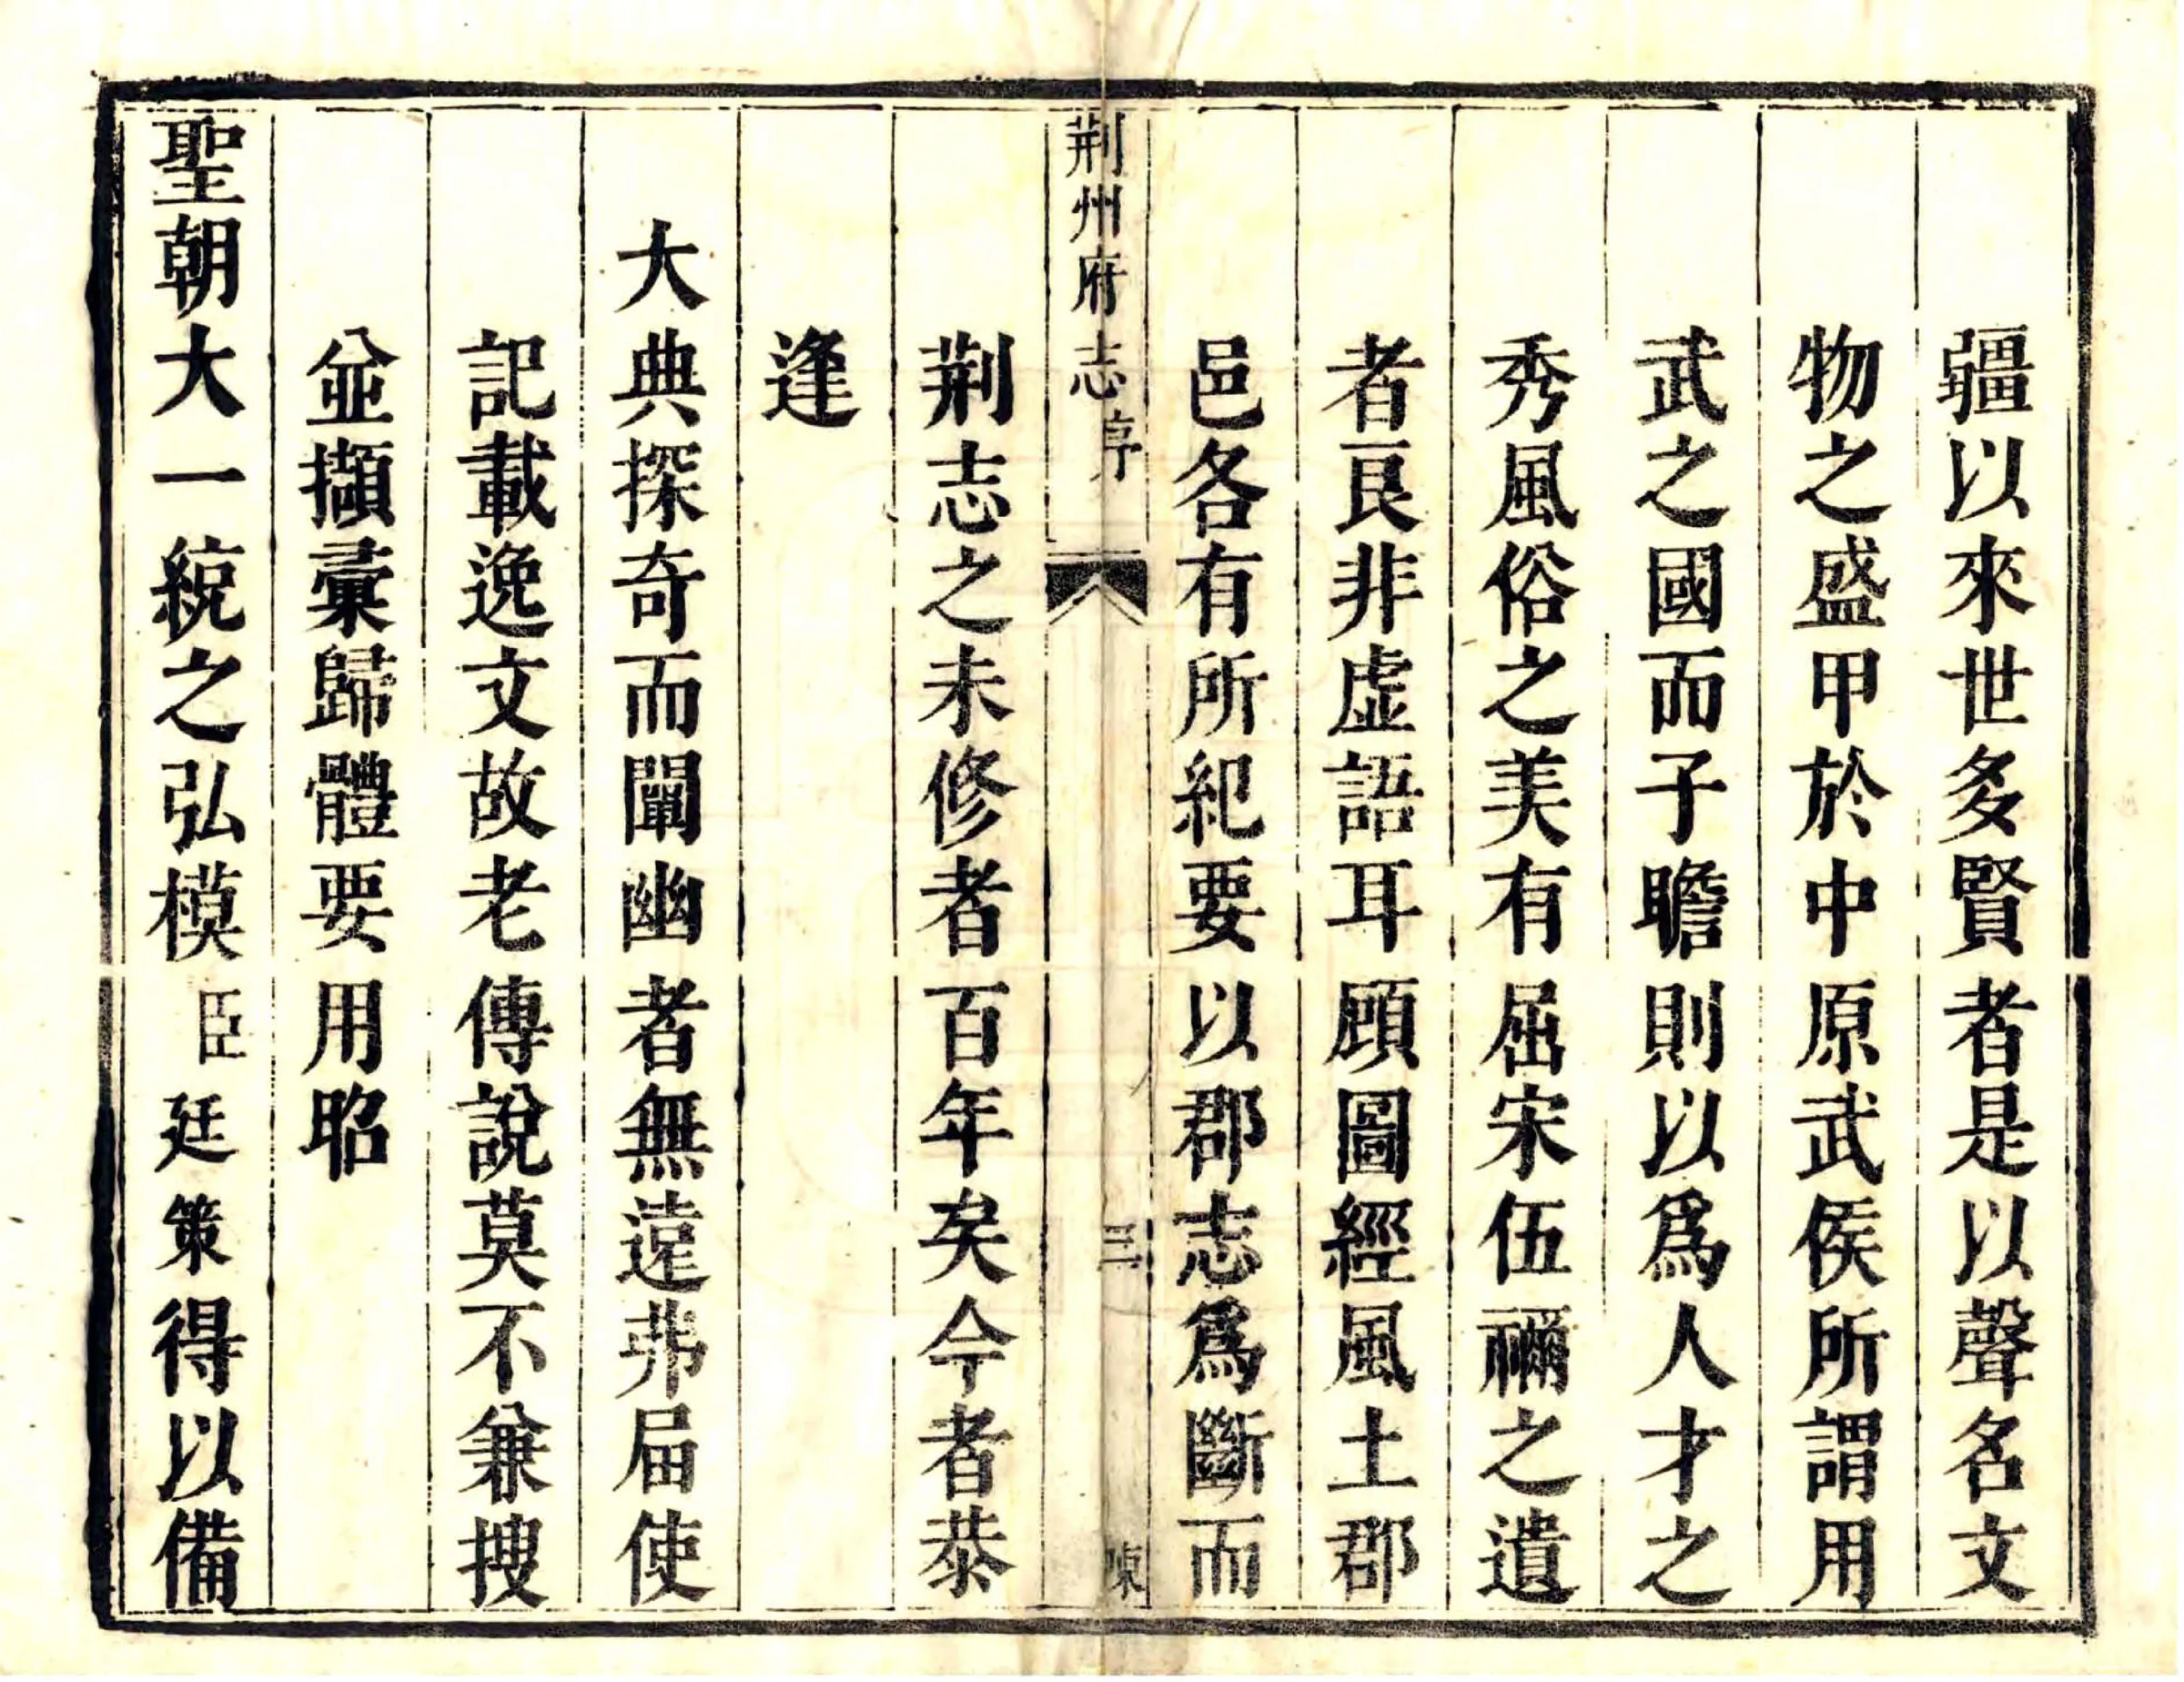 疆以來世多賢者是以聲名文
物之盛甲於中原武侯所謂用
武之國而子瞻則以爲人才之
秀風俗之美有屈宋伍禰之遺
者良非虛語耳顧圖經風土郡
邑各有所紀要以郡志爲斷而
荆州府志序
三
陳
荆志之未修者百年矣今者恭
逢
大典探奇而闡幽者無遠弗屆使
記載逸文故老傳說莫不兼搜
並擷彙歸體要用昭
聖朝大一統之弘模臣廷策得以備